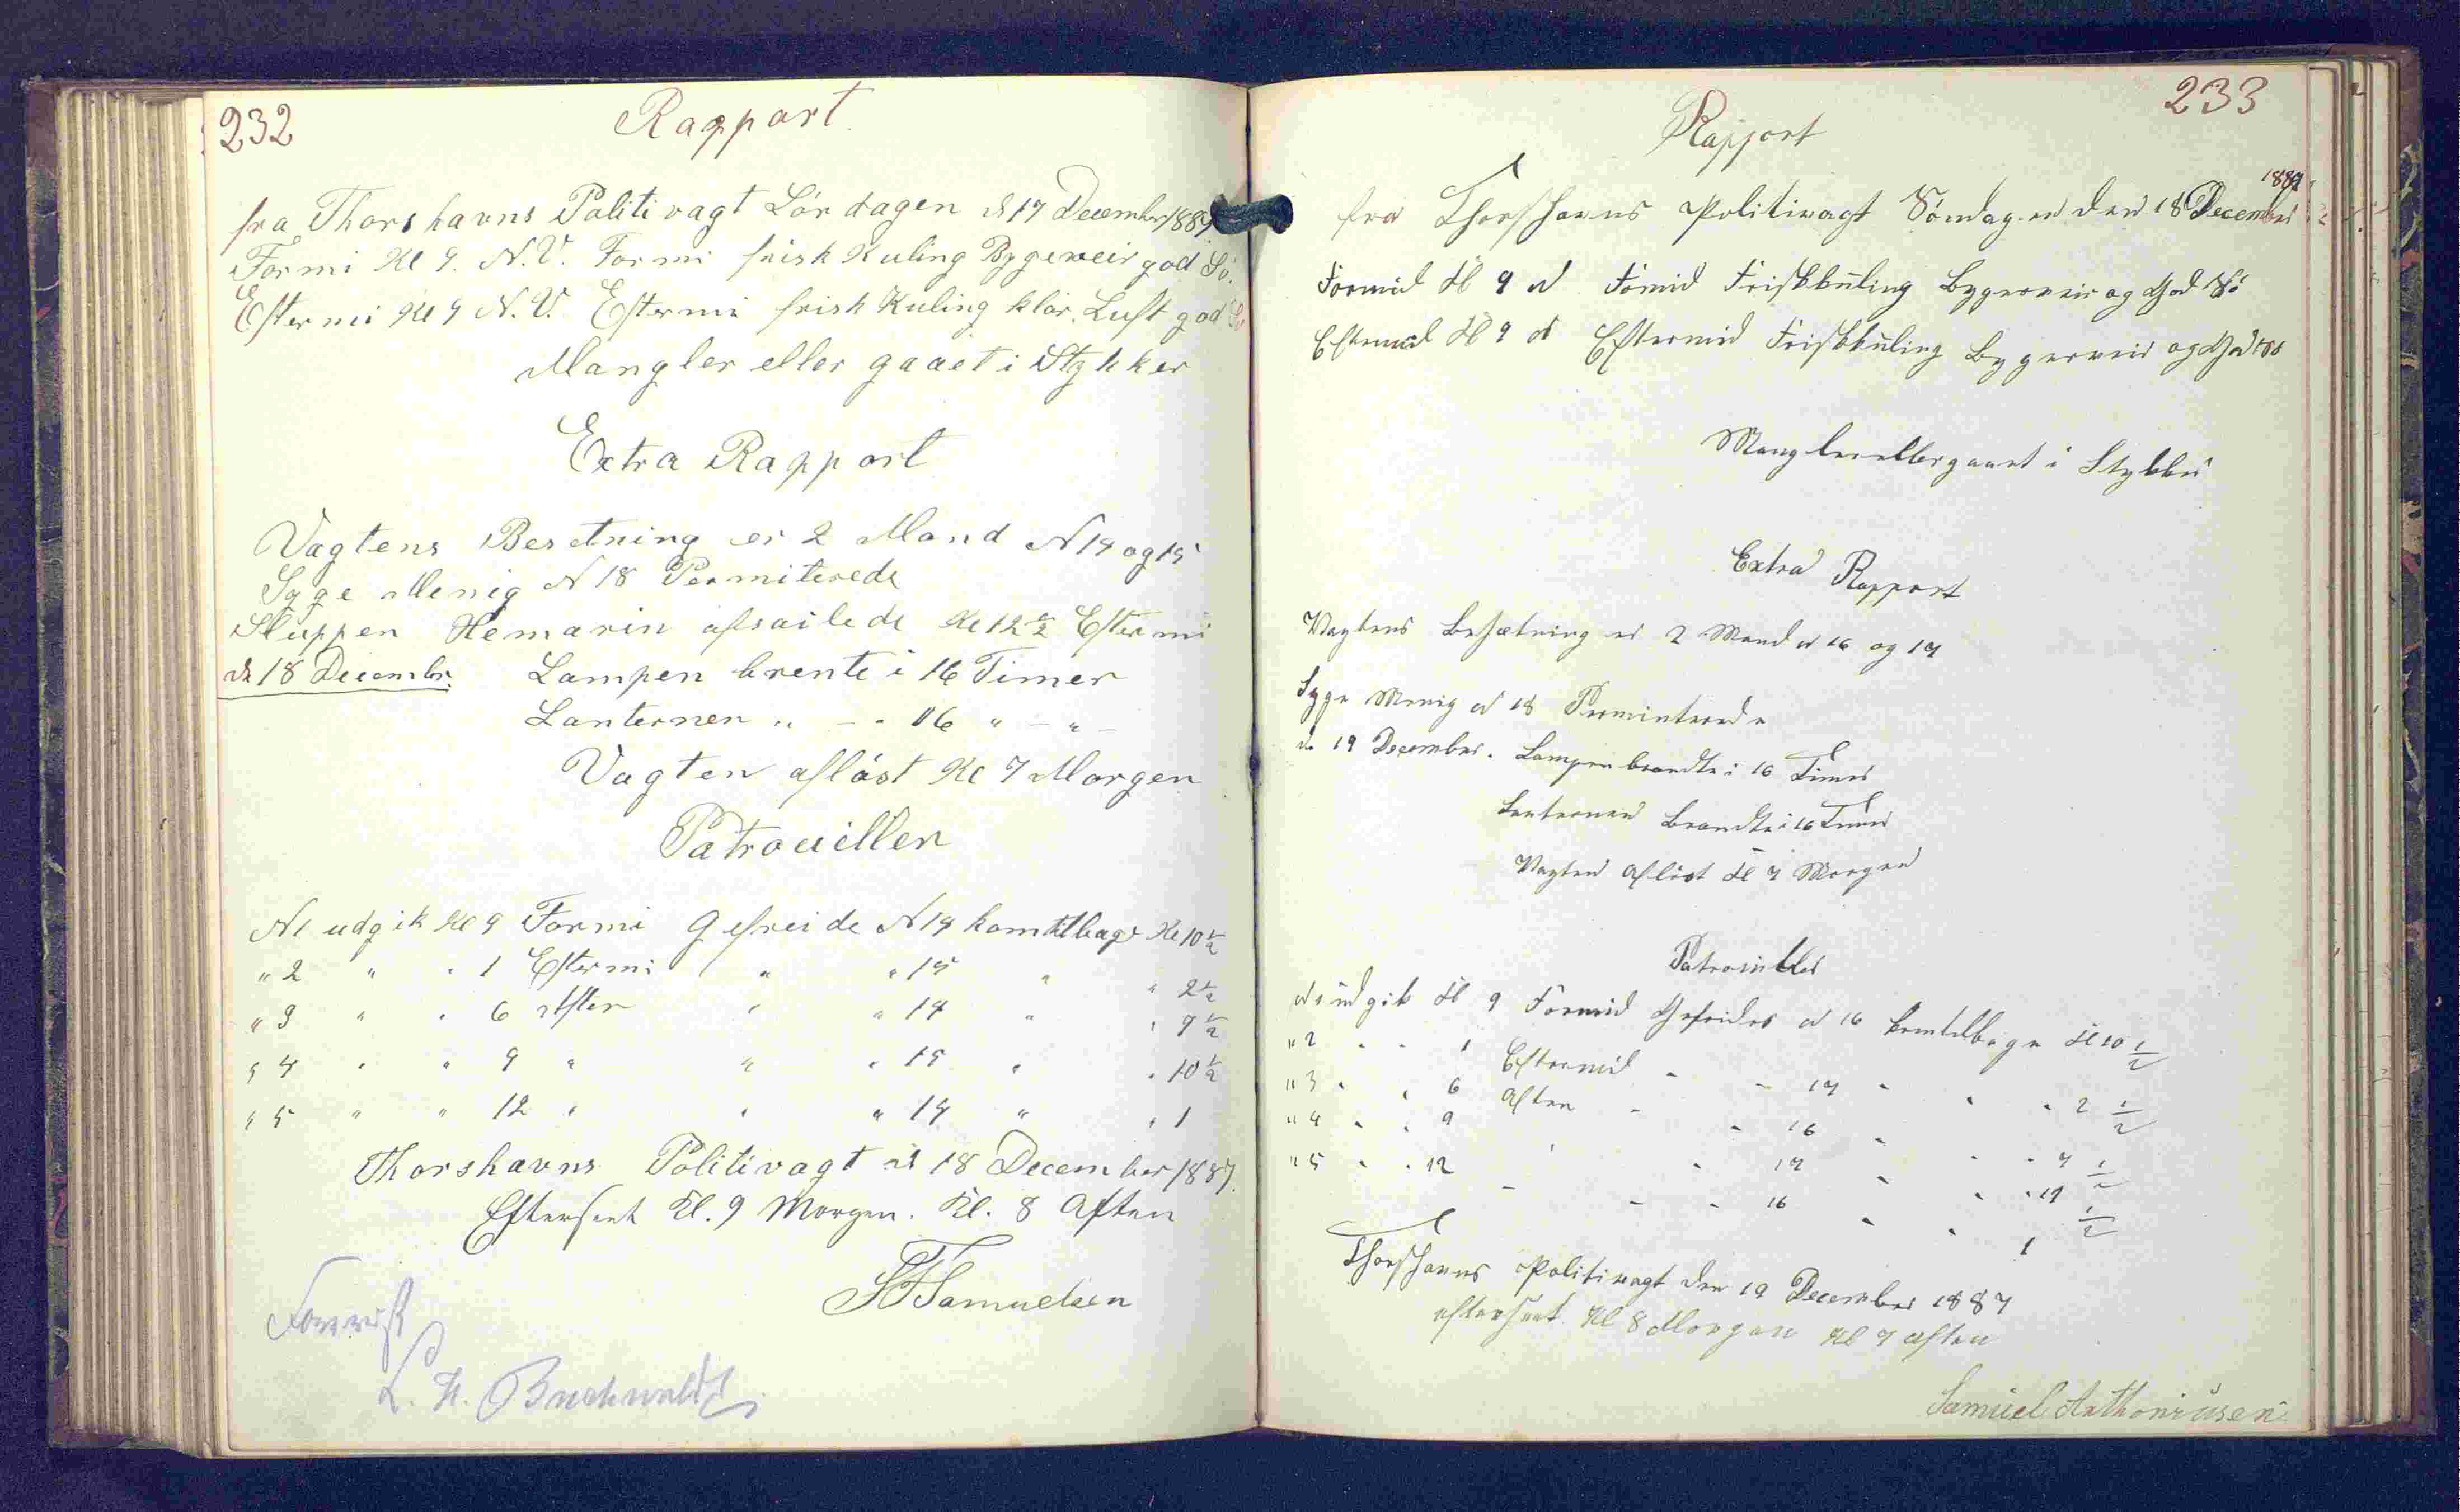 232
Rapport
fra Thorshavns Politivagt Lørdagen d 17 December 1887
Formi Kl 9. N.V. Formi frisk Kuling Bygeveir god Sö.
Eftermi Kl 9 N.V. Eftermi frisk Kuling klar Luft god Sö
Mangler eller gaaet i Stykker
Extra Rapport
Vagtens Besetning er 2 Mand N 14 og 15
Syge Menig N 18 Permiterede
Sluppen Hemarin afsailede Kl 12 1/2 Eftermi
d 18 Decembr. Lampen brente i 16 Timer
Lanternen " - " 16 " - " -
Vagten aflöst Kl 7 Morgen
Patrouiller
N1 udgik Kl 9 Formi Gefreide N 14 kom tilbage Kl 10 1/2
" 2 " " 1 Eftermi " " 15 " " 2 1/2
" 3 " " 6 Aften " " 14 " " 7 1/2
" 4 " " 9 " " " 15 " " 10 1/2
" 5 " " 12 " " " 14 " " 1
Thorshavns Politivagt d 18 December 1887.
Efterseet Kl. 9 Morgen. Kl. 8 Aften
Samuelsen
Forevist
L. H. Buchwaldt
233
Rapport
fra Thorshavns Politivagt Söndagen den 18 December 1887
Formid Kl 9 N Formid Friskkuling Bygeveir og God Sö
Eftermid Kl 9 N Eftermid Friskkuling Bygerveir og God Sö
Mangler eller gaaet i Stykker
Extra Rapport
Vagtens Besætning er 2 Mand N 16 og 17
Syge Menig N 18 Perminterede
d. 19 December. Lampen brandte i 16 Timer
Lanternen Brandte i 16 Timer
Vagten Aflöst Kl 7 Morgen
Patrouiller
N1 udgik Kl 9 Formid Gefreider N 16 komtilbage Kl 10 1/2
" 2 " " 1 Eftermid " " 17 " " " 2 1/2
" 3 " " 6 Aften " " 16 " " " 7 1/2
" 4 " " 9 " " 17 " " " 10 1/2
" 5 " " 12 " " " 16 " " 1
Thorshavns Politivagt den 19 December 1887
efterseet Kl 8 Morgen Kl 7 aften
Samuel Anthoniusen